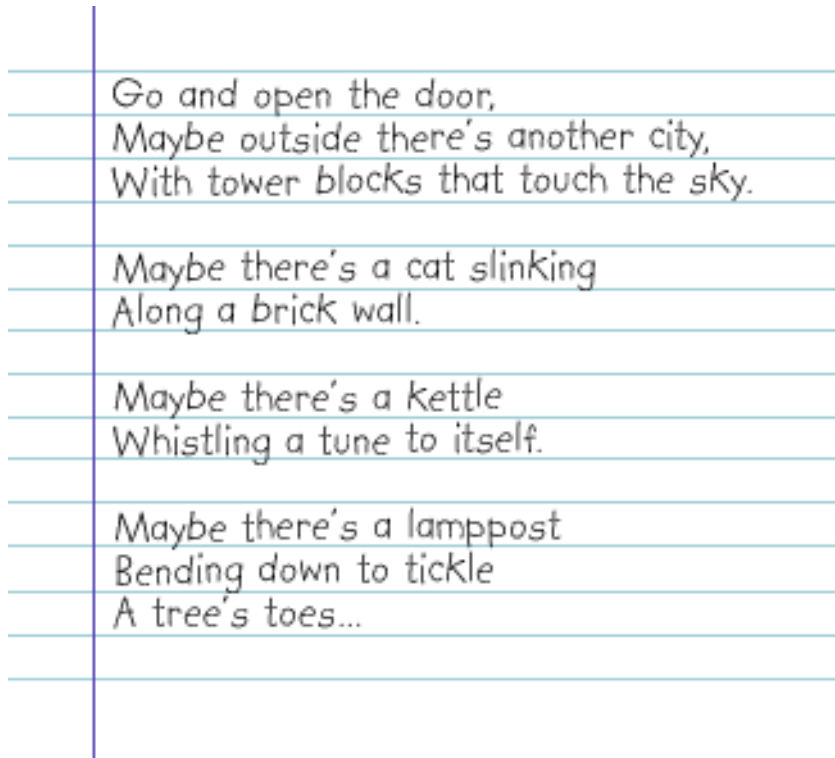 Go and open the door,
Maybe outside there's another city,
With tower blocks that touch the sky.

Maybe there's a cat slinking
Along a brick wall.

Maybe there's a kettle
Whistling a tune to itself.

Maybe there's a lamppost
Bending down to tickle
A tree's toes...